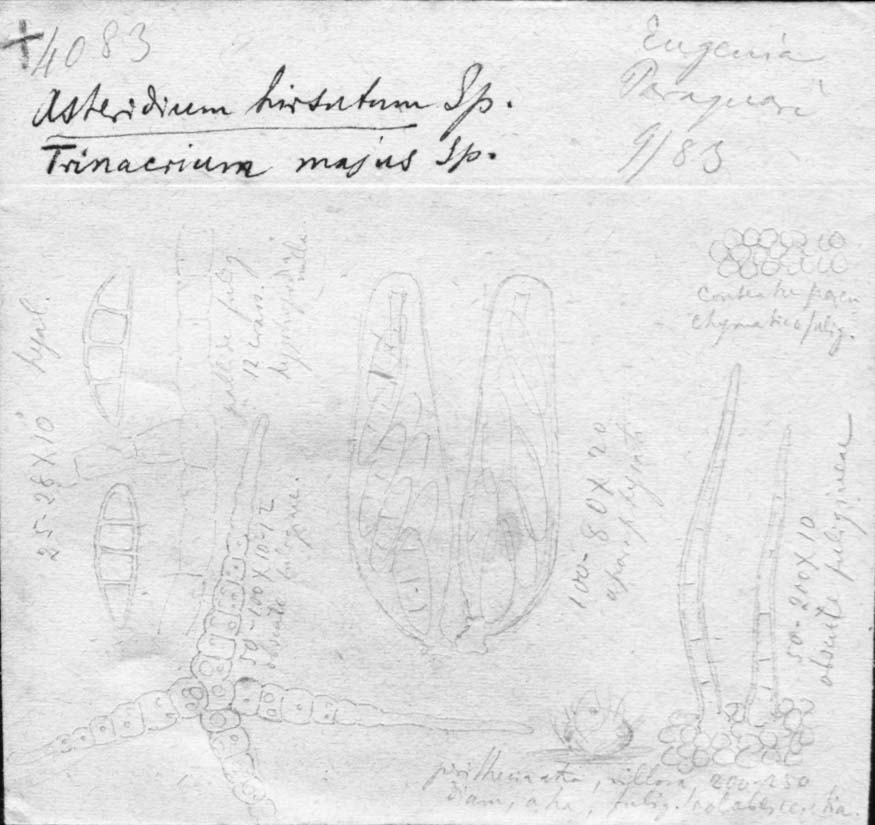 +4083
Asteridium hirsutum Sp.
Trinacrium majus Sp.
Eugenia
Paraguari
9/83
contextu paren
chymatico fulig.
25-28 X 10 hyal.
pallide fulig
12 crass.
50-100 X 10-12
obscure fuligine.
100-80 X 20
aparaphysati
50-200 X 10
obscure fuligineae
perithecia atra, villosa 200-250
diam,